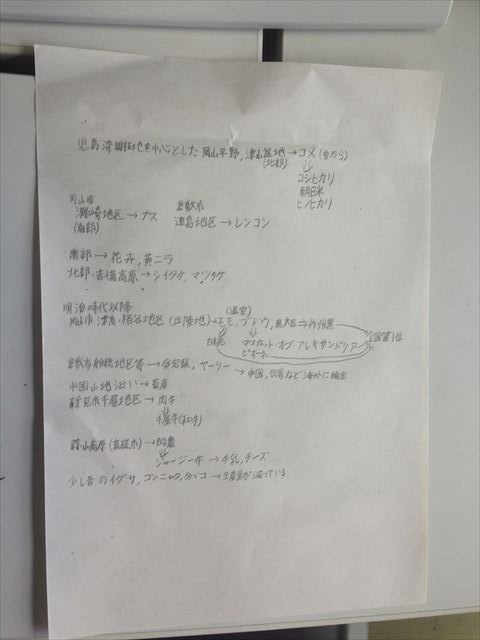 児島湾開拓地を中心とした岡山平野,津山盆地→コメ(昔から)
(北部)
コシヒカリ
朝日米
ヒノヒカリ
岡山市
灘崎地区→ナス
(南部)
倉敷市
連島地区→レンコン
南部→花卉,黄ニラ
北部・吉備高原→シイタケ,マツタケ
明治時代以降
(温室)
岡山市津高・栢谷地区(丘陵地)→モモ,ブドウ,黒大豆⇒作州黒
白桃
マスカット・オブ・アレキサンドリア
ピオーネ
全国第1位
倉敷市船穂地区等→
ヤーリー→中国,台湾など海外に輸出
中国山地沿い→畜産
新見市千屋地区→肉牛
千屋牛(和牛)
蒜山高原(真庭市)→酪農
ジャージー牛→牛乳,チーズ
少し昔のイグサ,コンニャク,タバコ→生産量が減っている